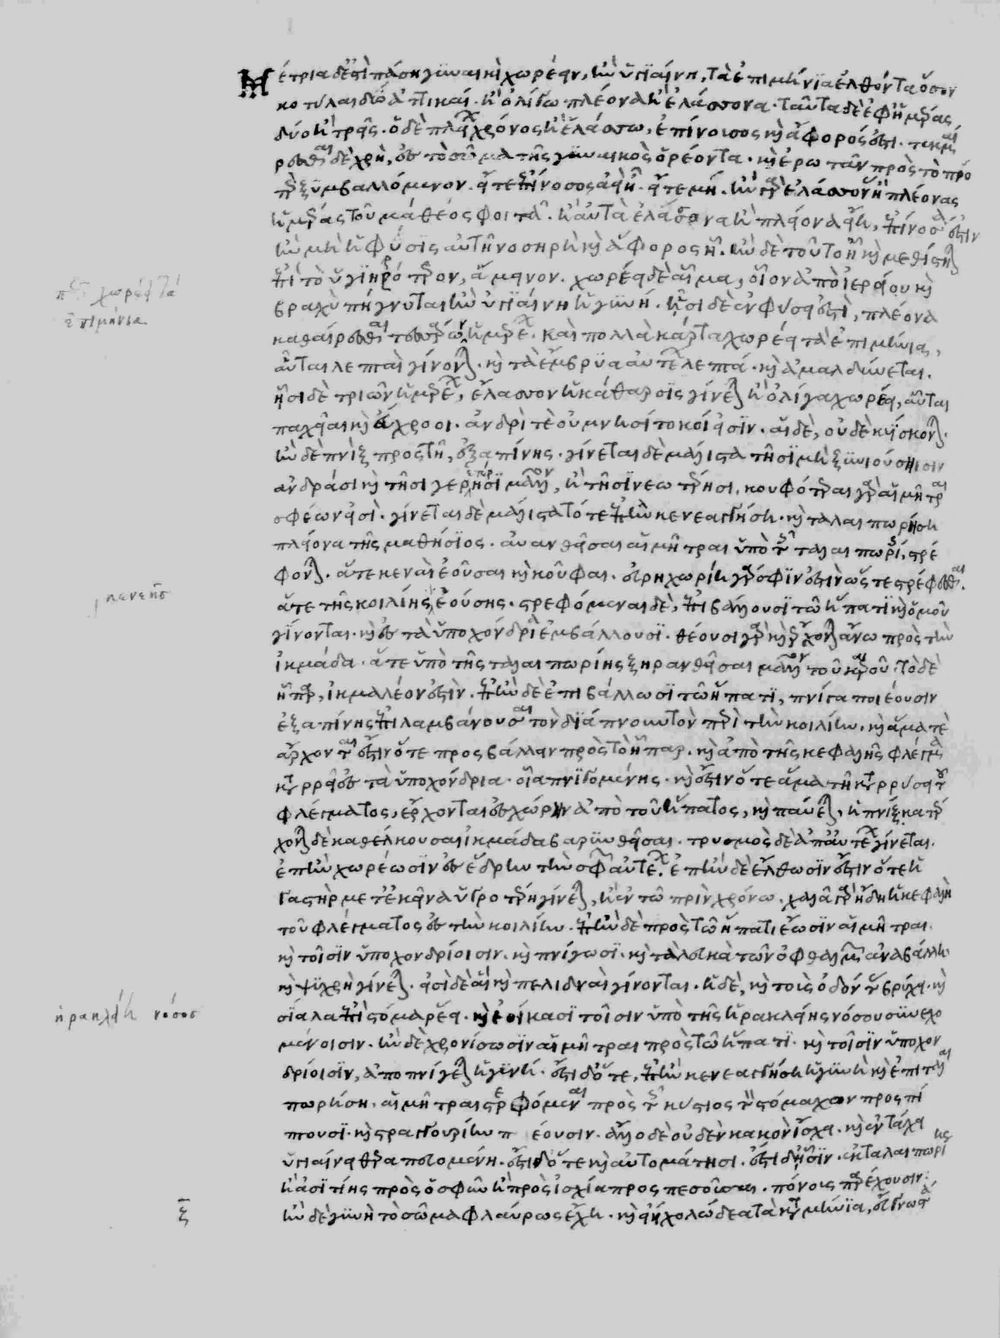 Μέτρια δέ ἐστι πάσῃ γυναικὶ χωρέειν, ἢν ὑγιαίνῃ, τὰ ἐπιμήνια ἐλθόντα ὅσον
κοτύλαι δύο ἀττικαὶ ἢ ὀλίγῳ πλέονα ἢ ἐλάσσονα· ταῦτα δὲ ἐφ' ἡμέρας
δύο ἢ τρεῖς· ὁ δὲ πλείων χρόνος ἢ ἐλάσσων, ἐπίνοσος καὶ ἄφορός ἐστι· τεκμαί
ρεσθαι δὲ χρὴ, ἐς τὸ σῶμα τῆς γυναικὸς ὁρέοντα· καὶ ἐρωτᾶν πρὸς τὸ πρό
τερον ξυμβαλλόμενον· εἴτε ἐπίνοσος εἴη· εἴτε μή· ἢν γὰρ ἐλάσσους ἢ πλέονας
ἡμέρας τοῦ μάθεος φοιτᾷ· ἢ αὐτὰ ἐλάσσονα ἢ πλείονα ᾖ, ἐπίνοσά ἐστιν
ἢν μὴ ἡ φύσις αὐτὴ νοσηρὴ καὶ ἄφορος ᾖ· ἢν δὲ τοῦτο ᾖ καὶ μεθίστηται
ἐπὶ τὸ ὑγιηρότερον, ἄμεινον· χωρέει δὲ αἷμα, οἷον ἀπὸ ἱερείου καὶ
βραχὺ πήγνυται ἢν ὑγιαίνῃ ἡ γυνή· ᾗσι δὲ ἐν φύσει ἐστὶ, πλέονα
καθαίρεσθαι τεσσάρων ἡμερέων· καὶ πολλὰ κάρτα χωρέει τὰ ἐπιμήνια,
αὗται λεπταὶ γίνονται· καὶ τὰ ἔμβρυα αὐτέων λεπτά· καὶ ἀμαλδύνεται·
ᾗσι δὲ τριῶν ἡμερέων, ἔλασσον ἡ κάθαρσις γίνεται ἢ ὀλίγα χωρέει, αὗται
παχεῖαι καὶ εὔχροοι· ἀνδρι τε οὐ μνησίτοκοί εἰσιν· αἱ δὲ, οὐδὲ κυΐσκονται·
ἢν δὲ πνὶξ προστῇ, ἐξαπίνης· γίνεται δὲ μάλιστα τῇσι μὴ ξυνιούσῃσιν
ἀνδράσι καὶ τῇσι γεραιτέρῃσι μᾶλλον, ἢ τῇσι νεωτέρῃσι, κουφότεραι γὰρ αἱ μῆτραι
σφέων εἰσί· γίνεται δὲ μάλιστα τότε ἐπὴν κενεαγγήσῃ· καὶ ταλαιπωρήσῃ
πλείονα τῆς μαθήσιος· αὐανθεῖσαι αἱ μῆτραι ὑπὸ τῆς ταλαιπωρίης, στρέ
φονται· ἅτε κεναὶ ἐοῦσαι καὶ κοῦφαι· εὐρυχωρίη γάρ σφιν ἐστὶν ὥστε στρέφεσθαι·
ἅτε τῆς κοιλίης ἐούσης· στρεφόμεναι δὲ, ἐπιβάλλουσι τῷ ἥπατι καὶ ὁμοῦ
γίνονται· καὶ ἐς τὰ ὑποχόνδρια ἐμβάλλουσι· θέουσι γὰρ καὶ ἔρχονται ἄνω πρὸς τὴν
ἰκμάδα· ἅτε ὑπὸ τῆς ταλαιπωρίης ξηρανθεῖσαι μᾶλλον τοῦ καιροῦ· τὸ δὲ
ἧπαρ, ἰκμαλέον ἐστίν· ἐπὴν δὲ ἐπιβάλλωσι τῷ ἥπατι, πνίγα ποιέουσιν
ἐξαπίνης ἐπιλαμβάνουσαι τὸν διάπνοον τὸν περὶ τὴν κοιλίην· καὶ ἅμα τε
ἄρχονται ἔστιν ὅτε προσβάλλειν πρὸς τὸ ἧπαρ· καὶ ἀπὸ τῆς κεφαλῆς φλέγμα
καταρρεῖ ἐς τὰ ὑποχόνδρια· οἷα πνιγομένης· καὶ ἔστιν ὅτε ἅμα τῇ καταρρύσει τοῦ
φλέγματος, ἔρχονται ἐς χώρην ἀπὸ τοῦ ἥπατος, καὶ παύεται, ἡ πνίξ· κατέρ
χονται δὲ καθέλκουσαι ἰκμάδα βαρυνθεῖσαι· τρυσμὸς δὲ ἀπ' αὐτέων γίνεται·
ἐπὴν χωρέωσιν ἐς ἕδρην τὴν σφῶν αὐτέων· ἐπὴν δὲ ἔλθωσιν ἔστιν ὅτε ἡ
γαστὴρ μετ' ἐκεῖνα ὑγροτέρη γίνεται, ἢ ἐν τῷ πρὶν χρόνῳ· χαλᾷ γὰρ ἤδη ἡ κεφαλὴ
τοῦ φλέγματος ἐς τὴν κοιλίην· ἐπὴν δὲ πρὸς τῷ ἥπατι ἔωσιν αἱ μῆτραι
καὶ τοῖσιν ὑποχονδρίοισιν· καὶ πνίγωσι· καὶ τὰ λευκὰ τῶν ὀφθαλμῶν ἀναβάλλει
καὶ ψυχρὴ γίνεται· εἰσὶ δὲ αἳ καὶ πελιδναὶ γίνονται· ἤδη, καὶ τοὺς ὀδόντας βρύχει· καὶ
σίαλα ἐπὶ στόμα ῥέει· καὶ ἐοίκασι τοῖσιν ὑπὸ τῆς ἡρακλείης νόσου συνεχο
μένοισιν· ἢν δὲ χρονίσωσιν αἱ μῆτραι πρὸς τῷ ἥπατι· καὶ τοῖσιν ὑποχον
δρίοισιν, ἀποπνίγεται ἡ γυνή· ἔστι δ' ὅτε, ἐπὴν κενεαγγήσῃ ἡ γυνὴ καὶ ἐπιταλαι
πωρήσῃ· αἱ μῆτραι στρεφόμεναι πρὸς τῆς κύστιος τὸν στόμαχον προσπί
πτουσι· καὶ στραγγουρίην π έουσιν· ἄλλο δὲ οὐδὲν κακὸν ἴσχει· καὶ ἐν τάχει
ὑγιαίνει θεραπευομένη· ἔστι δ' ὅτε καὶ αὐτομάτῃσι· ἔστι δ' ᾗσιν· ἐκ ταλαιπωρίης
ἢ ἀσιτίης πρὸς ὀσφὺν ἢ πρὸς ἰσχία προσπεσοῦσαι· πόνους παρέχουσιν·
ἢν δὲ γυνὴ τὸ σῶμα φλαύρως ἔχῃ· καὶ ᾖ χολώδεα τὰ καταμήνια, εὔγνωστα
πῶς χωρέει τὰ
ἐπιμήνια
κενεῆς
ἡρακλείη νόσος
ξ